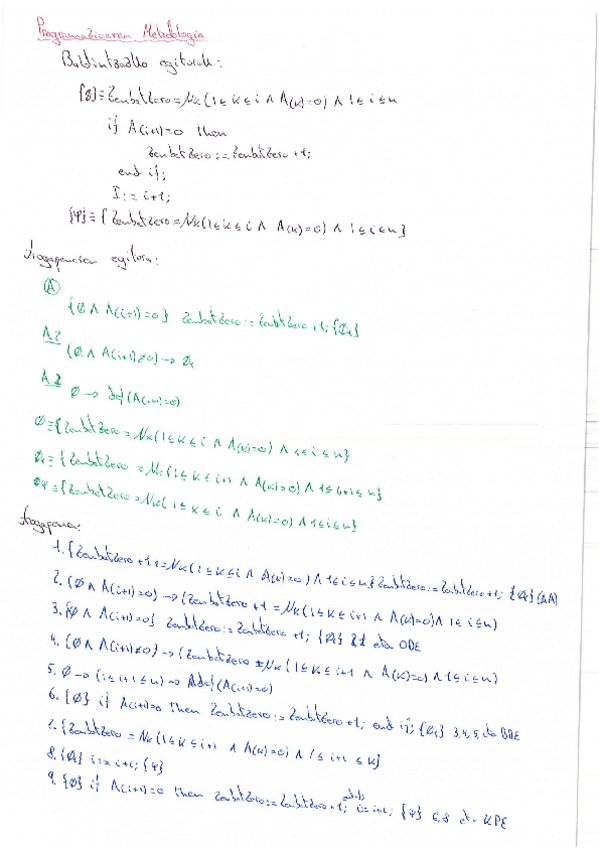 Programazioaren Metodologia
Baldintzazko egiturak:
{Ø}≡ZenbatZero=Nk(1≤k≤i ∧ A(k)=0) ∧ 1≤i≤n
if A(i+1)=0 then
ZenbatZero:=ZenbatZero+1;
end if;
I:=i+1;
{Ψ}≡{ZenbatZero=Nk(1≤k≤i ∧ A(k)=0) ∧ 1≤i≤n}
frogapenaren egitura:
A
{Ø ∧ A(i+1)=0} ZenbatZero:=ZenbatZero+1; {Ø1}
A.2
(Ø ∧ A(i+1)≠0) → Ø1
A.3
Ø → def(A(i+1)=0)
Ø≡{ZenbatZero=Nk(1≤k≤i ∧ A(k)=0) ∧ 1≤i≤n}
Ø1≡{ZenbatZero=Nk(1≤k≤i+1 ∧ A(k)=0) ∧ 1≤i+1≤n}
≡{ZenbatZero=Nk(1≤k≤i ∧ A(k)=0) ∧ 1≤i≤n}
frogapena:
1. {ZenbatZero+1 =Nk(1≤k≤i ∧ A(k)=0) ∧ 1≤i≤n} ZenbatZero:=ZenbatZero+1; {Ø1} (AA)
2. (Ø ∧ A(i+1)=0) → (ZenbatZero+1=Nk(1≤k≤i+1 ∧ A(k)=0) ∧ 1≤i≤n)
3. {Ø ∧ A(i+1)=0} ZenbatZero:=ZenbatZero+1; {Ø1} eta ODE
4. (Ø ∧ A(i+1)≠0) → (ZenbatZero=Nk(1≤k≤i+1 ∧ A(k)=0) ∧ 1≤i≤n)
5. Ø → (1≤i+1≤n) → def(A(i+1)=0)
6. {Ø} if A(i+1)=0 then ZenbatZero:=ZenbatZero+1; end if; {Ø1} 3,4,5, eta BDE
7. {ZenbatZero=Nk(1≤k≤i+1 ∧ A(k)=0) ∧ 1≤i+1≤n}
8. {Ø1} i:=i+1; {Ψ}
9. {Ø} if A(i+1)=0 then ZenbatZero:=ZenbatZero+1; end if; i:=i+1; {Ψ} 6,8 eta KPE